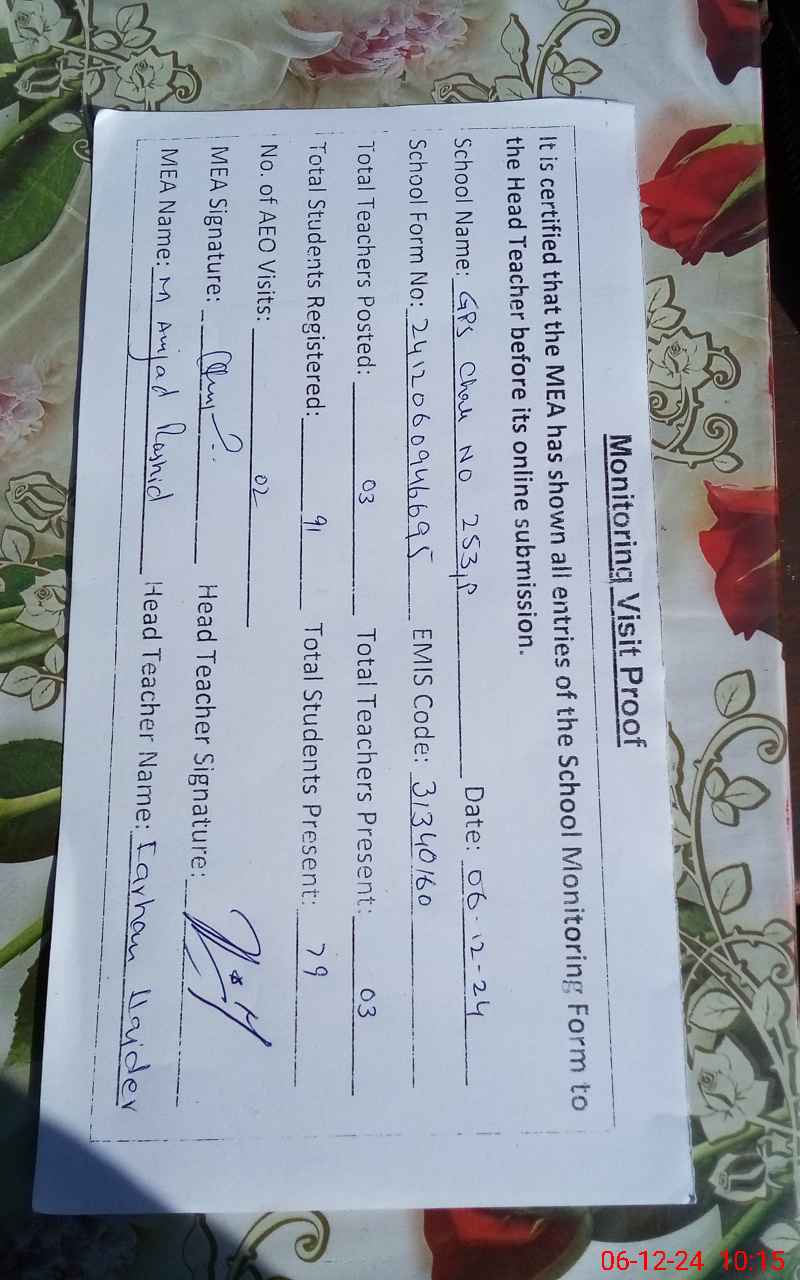 Monitoring Visit Proof
It is certified that the MEA has shown all entries of the School Monitoring Form to
the Head Teacher before its online submission.
School Name: GPS Chak No 253,P Date: 06-12-24
School Form No: 2412060946695 EMIS Code: 31340160
Total Teachers Posted: 03 Total Teachers Present: 03
Total Students Registered: 91 Total Students Present: 79
No. of AEO Visits: 02
MEA Signature: Head Teacher Signature:
MEA Name: M Amjad Rashid Head Teacher Name: Farhan Haider
06-12-24 10:15